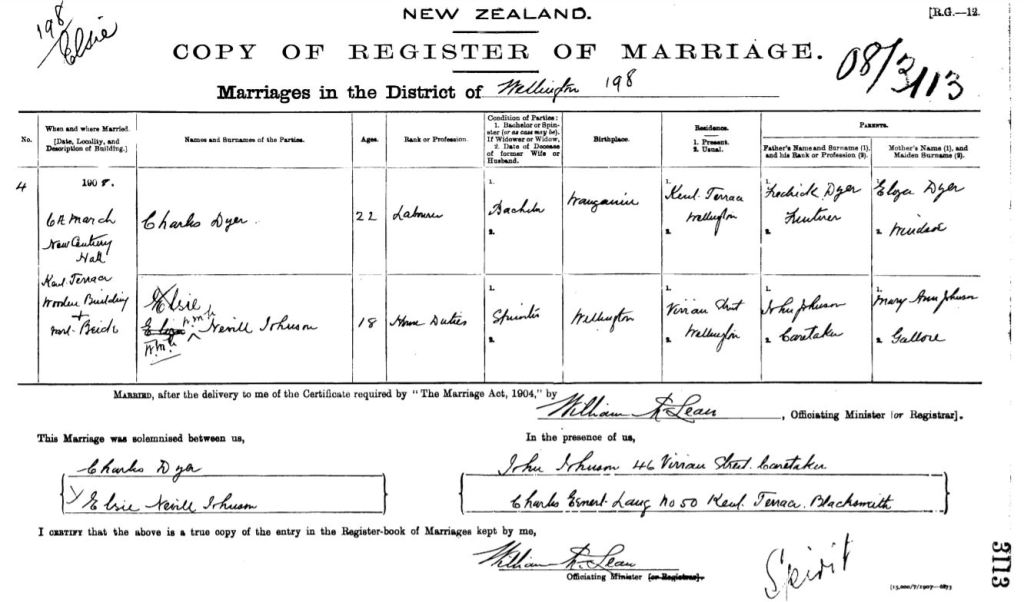 198
Elsie
NEW ZEALAND.
[R.G.—12.
COPY OF REGISTER OF MARRIAGE.
08/3113
Marriages in the District of Wellington 198
No.
When and where Married.
[Date, Locality, and
Description of Building.]
Names and Surnames of the Parties.
Ages.
Rank or Profession.
Condition of Parties:
1. Bachelor or Spin-
ster (or as case may be).
If Widower or Widow,
2. Date of Decease
of former Wife or
Husband.
Birthplace.
Residence.
1. Present.
2. Usual.
PARENTS.
Father's Name and Surname (1),
and his Rank or Profession (2).
Mother's Name (1), and
Maiden Surname (2).
4
1908.
6th March
New Century
Hall
Kent Terrace
Wooden Building
+
Charles Dyer.
22
Labourer
1.
Bachelor
2.
Wanganui
1.
Kent Terrace
Wellington
2.
1.
Fredrick Dyer
2.
1.
Eliza Dyer
2.
Elsie
Nevill Johnson
18
Home Duties
1.
Spinster
2.
Wellington
1.
Vivian Street
Wellington
2.
1.
John Johnson
2. Caretaker
1.
Mary Ann Johnson
2. Gallore
MARRIED, after the delivery to me of the Certificate required by "The Marriage Act, 1904," by
William McLean, Officiating Minister [or Registrar].
This Marriage was solemnised between us,
In the presence of us,
Charles Dyer
Elsie Nevill Johnson
John Johnson 46 Vivian Street. Caretaker
Charles Ernest Lang No 50 Kent Terrace. Blacksmith
I CERTIFY that the above is a true copy of the entry in the Register-book of Marriages kept by me,
William McLean
Officiating Minister [or Registrar].
Spirit
3113